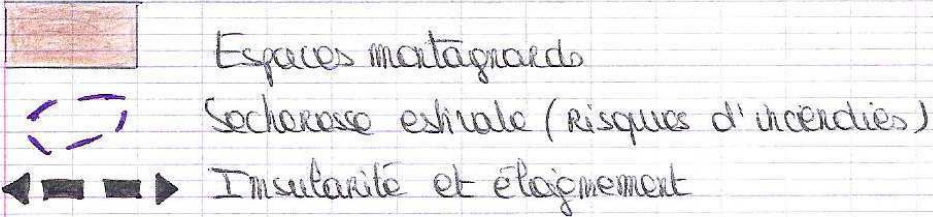 Espaces montagnards
Secheresse estivale (Risques d'incendies)
Insularité et éloignement